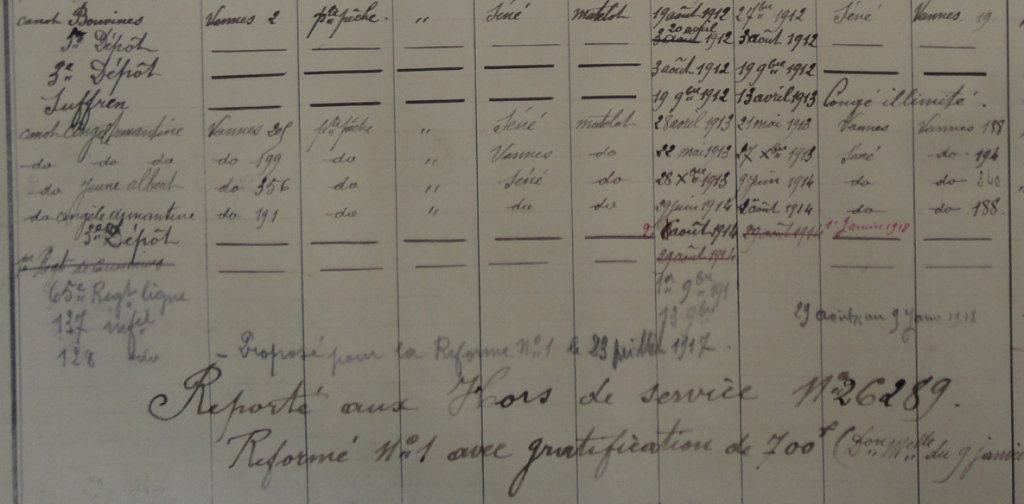 canot Bouvines Vannes 2 pte pêche " Séné matelot 19 août 1912 27 1912 Séné Vannes 19
5e Dépôt — — — — — 3 août 20 avril 1912 3 août 1912 — —
3e Dépôt — — — — — 3 août 1912 19 9bre 1912 — —
Suffren — — — — — 19 9bre 1912 13 avril 1913 Congé illimité.
canot Amantine Vannes pte pêche " Séné matelot 28 avril 1913 21 mai 1913 Vannes Vannes 188
do do do do 199 do " Vannes do 22 mai 1913 27 Xbre 1913 Séné do 194
do jeune albert do 356 do " Séné do 28 Xbre 1913 9 juin 1914 do do 340
do do 191 do " do do 29 juin 1914 2 août 1914 do do 188.
3e Dépôt — — — — — août 1914 29 août 1914 1er Janvier 1918 —
— — — — — 29 août 1914 — — —
65e Regt ligne 1er 9bre 191
137 infie 18 9bre 29 août au 9 Janv 1918
128 do – Proposé pour la Reforme No 1 le 23 juillet 1917.
Reporté aux Hors de service No 26289.
Reformé No 1 avec gratification de 700f (Don Mlle du 9 janvier